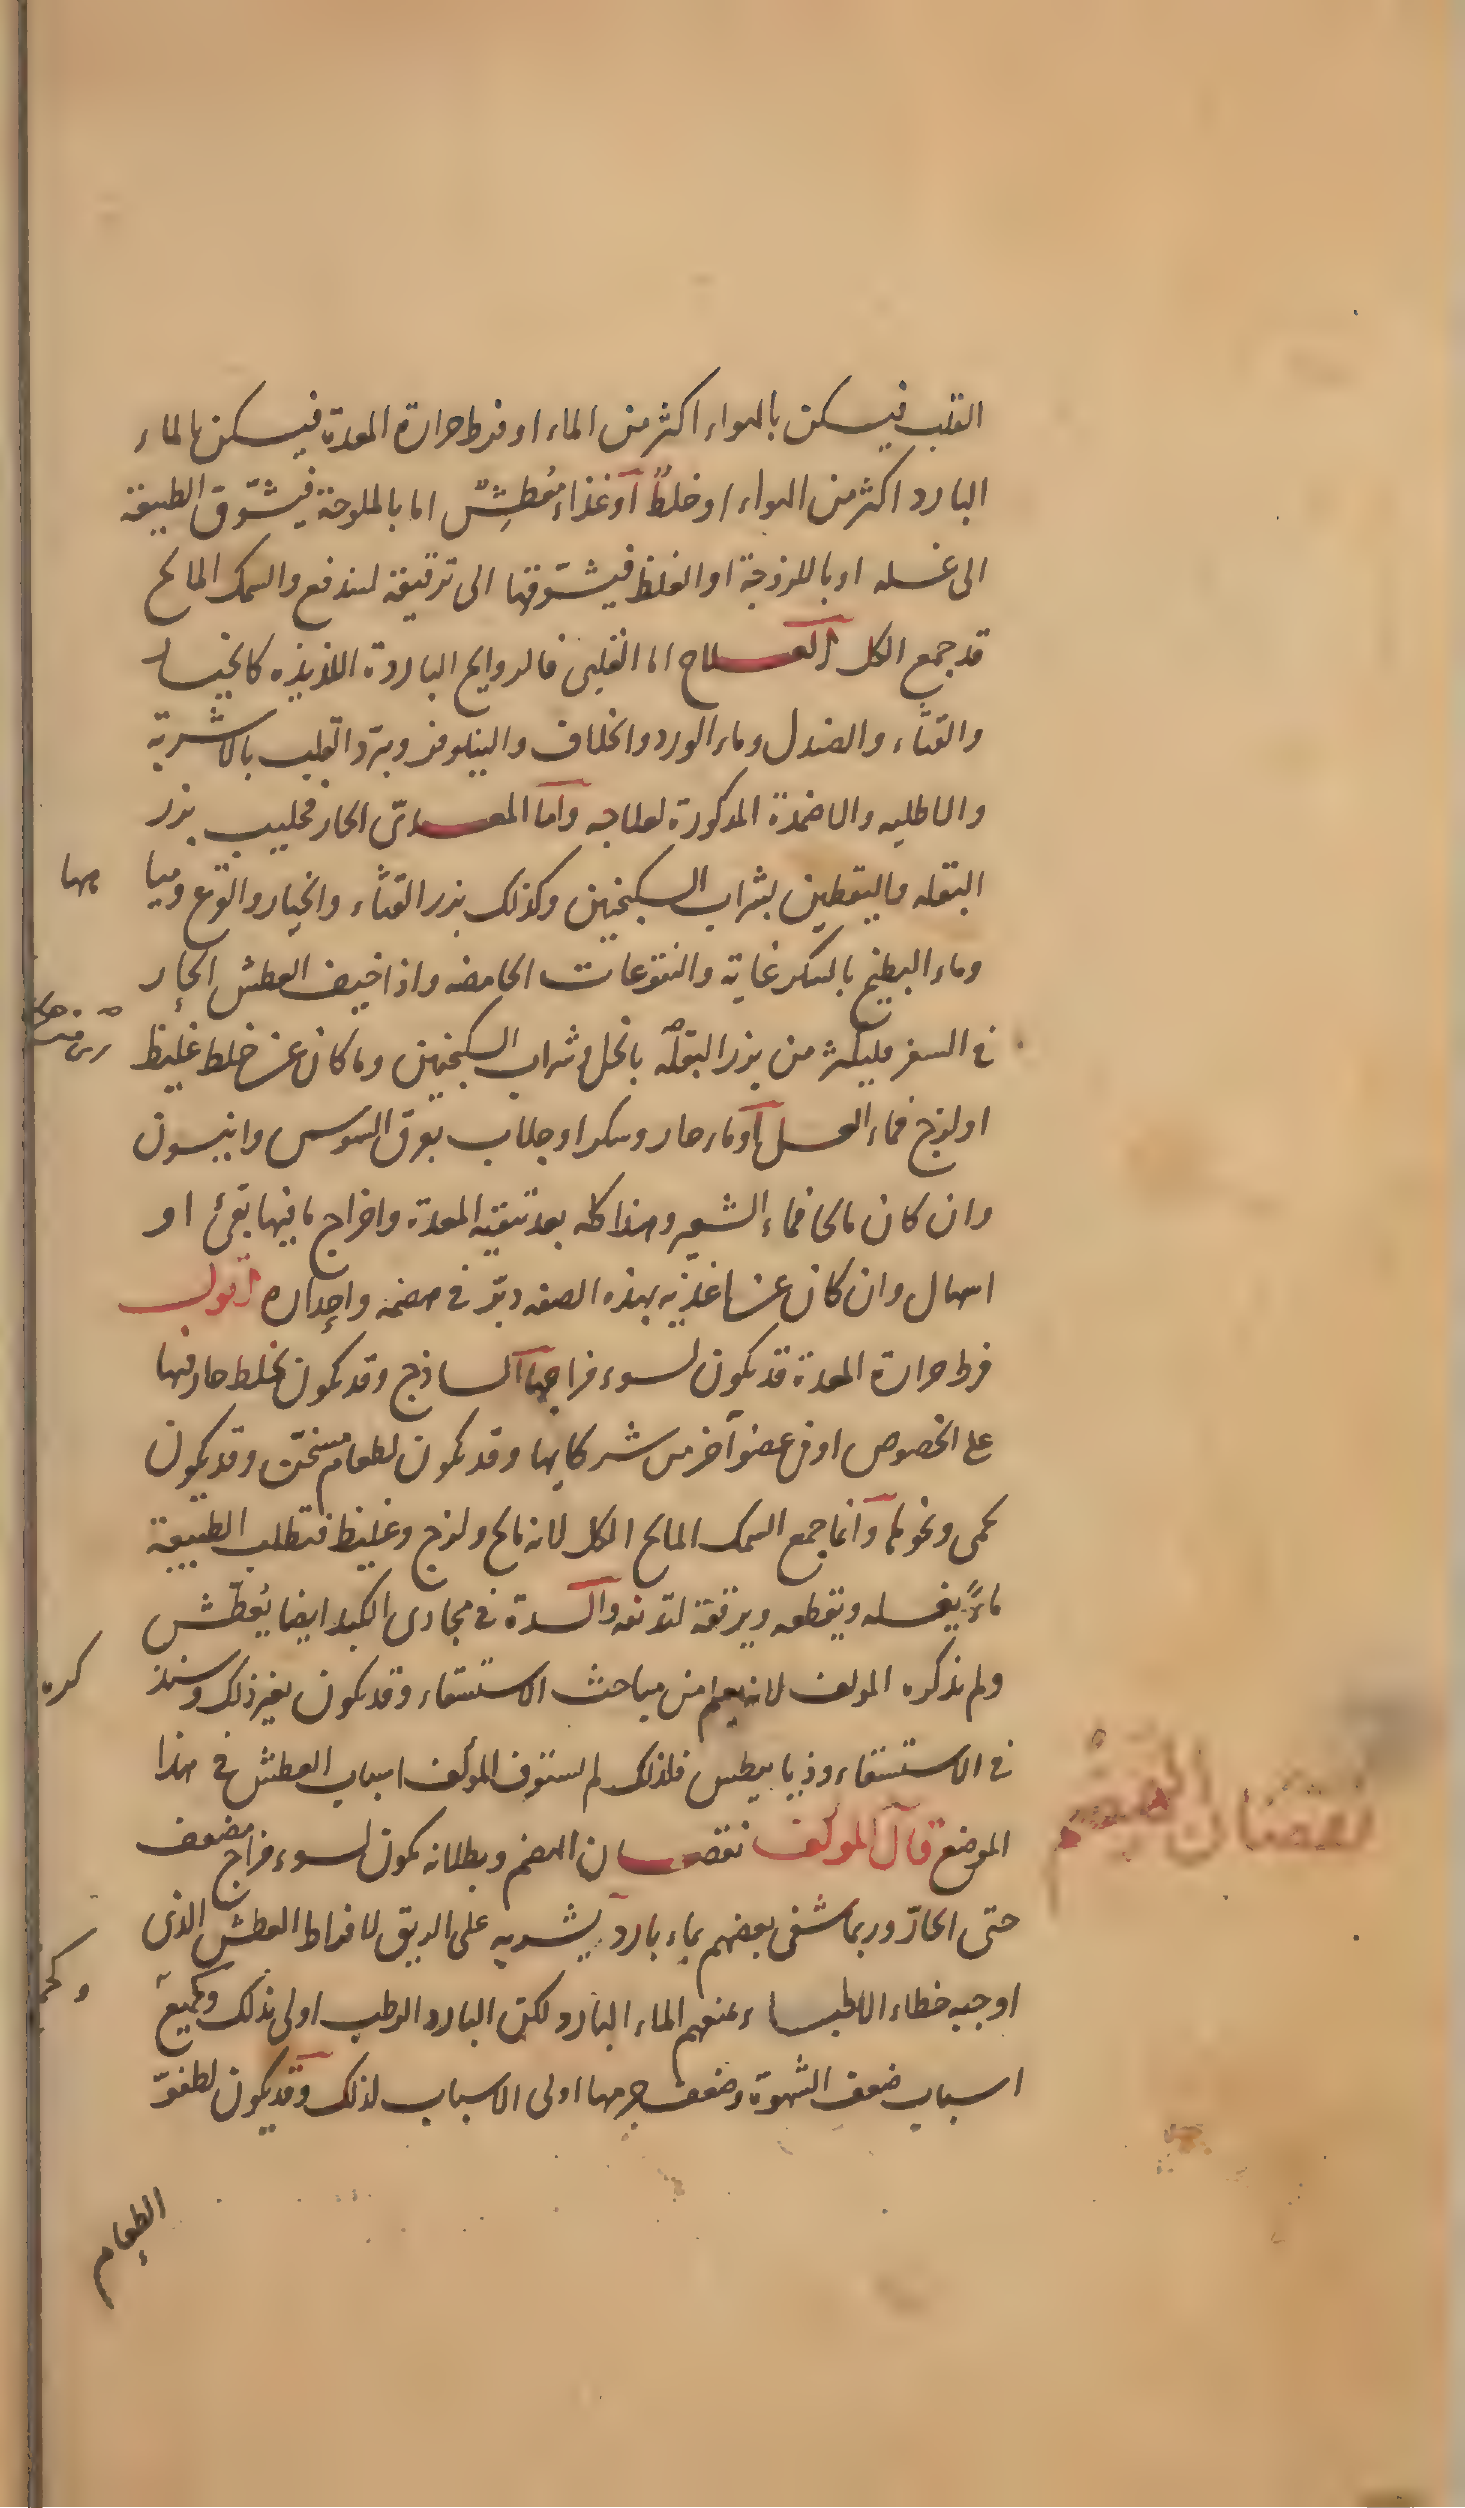 القلب فيسكن بالهواء اكثر من الماء او فرط حرارة المعدة فيسكن بالماء
البارد اكثر من الهواء او خلطٌ او غذاء مُعطِشٌ اما بالملوحة فيشوّق الطبيعة
الى غسله او باللزوجة او الغلظ فيشوّقها الى ترقيقة لسدفع والسمك المالح
قد جمع الكل العلاج اما القلبى فالروايح الباردة اللذيذه كالخيار
والقثاء والصندل وماء الورد والخلاف والنيلوفر وبرّد القلب بالاشربة
والاطليه والاضمدة المذكورة لعلاجه وأما المعدىّ الحار فحليب بزر
البقله واليقطين بشراب السكنجبين وكذلك بزر القثاء والخيار والقرع ومياهها
وماء البطيخ بالسكر غاية والنقوعات الحامضه واذا خيف العطش الحار
فى السفر فليكثر من بزر البقله بالخل وشراب السكنجبين وما كان عن خلط غليظ
او لزج فماء العسل او ماء حار وسكر او جلاب بعرق السوس وانيسون
وان كان مالحا فماء الشعير وهذا كله بعد تنقيه المعدة واخراج ما فيها بقئ او
اسهال وان كان عن اغذيه بهذه الصفه دبّر فى هضمه واحداره اقول
فرط حرارة المعدة قد يكون لسوء مزاجها الساذج وقد يكون لخلط حار فيها
على الخصوص او فى عضو آخر من شركايها وقد يكون لطعام مسخن وقد يكون
لحمى ونحوها وانما جمع السمك المالح الكل لانه مالح ولزج وغليظ فتطلب الطبيعة
ماءً يغسله ويقطعه ويرققه لتدفعه والسدة فى مجارى الكبد ايضا يُعطّش
ولم يذكره المولف لانه يعلم من مباحث الاستسقاء وقد يكون لغير ذلك وسنذكره
فى الاستسقاء وذيابيطس فلذلك لم يستوف المؤلف اسباب العطش فى هذا
الموضع قال المولف نقصان الهضم وبطلانه يكون لسوء مزاج مضعف
نقصان الهضم
حتى الحارّ وربما شفى بعضهم بماء بارد يشربه على الريق لافراط العطش الذى
اوجبه خطاء الاطباء بمنعهم الماء البارد لكن البارد الرطب اولى بذلك وجميع
اسباب ضعف الشهوة وضعف جرمها اولى الاسباب لذلك وقد يكون لطفوّ
الطعام